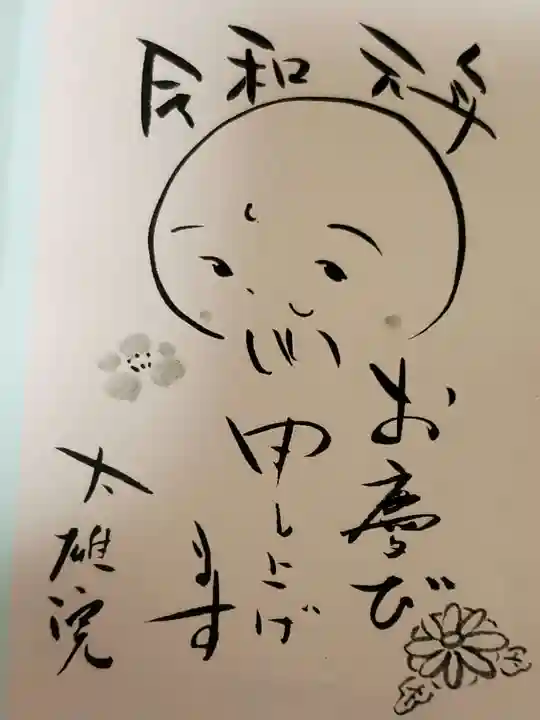 令和 元年
お慶び
申し上げ
ます
大雄院